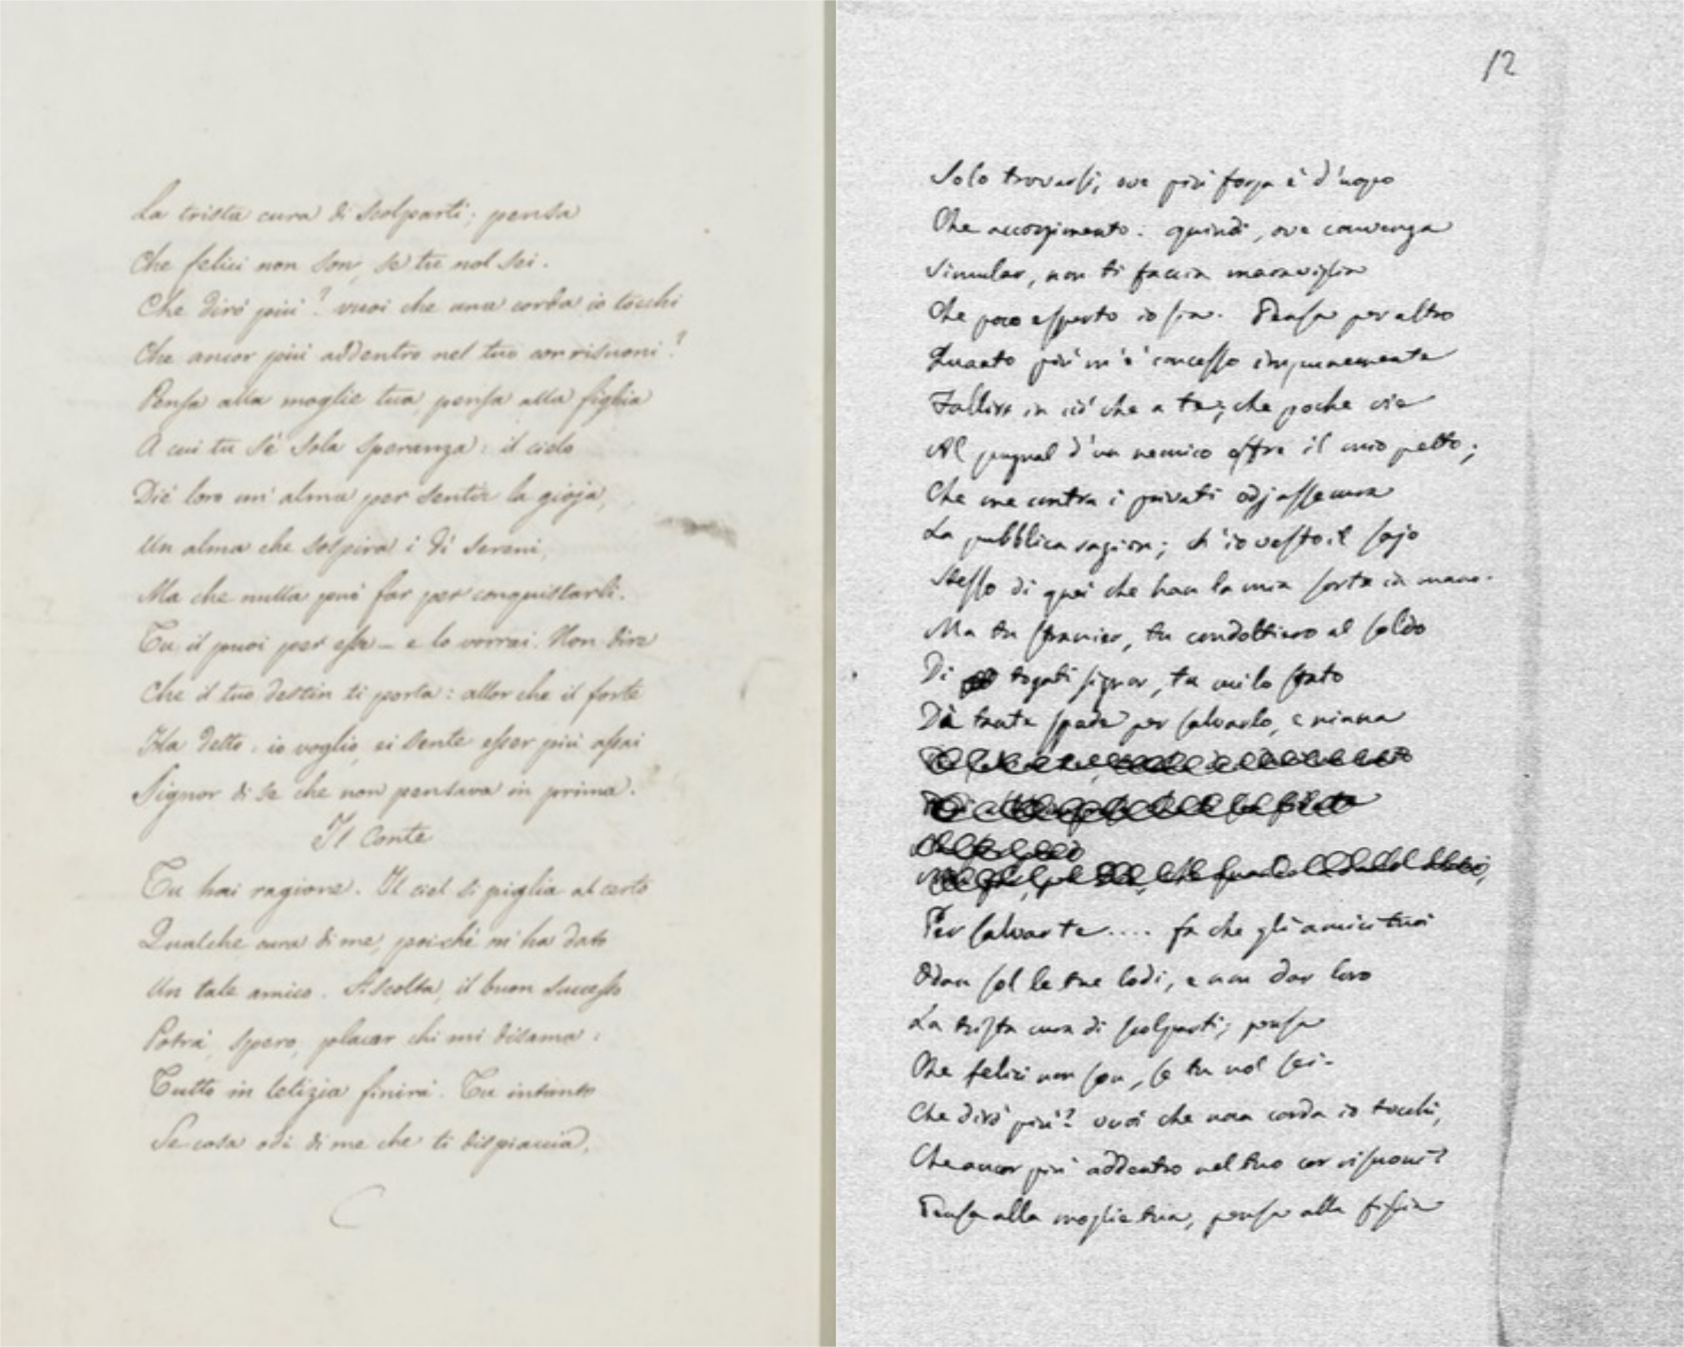 La trista cura di scolparti; pensa
Che felici non son, se tu nol sei.
Che dirò più? vuoi che una corda io tocchi
Che ancor più addentro nel tuo cor risuoni?
Pensa alla moglie tua, pensa alla figlia
A cui tu se' sola speranza: il cielo
Diè loro un' alma per sentir la gioja,
Un alma che sospira i dì sereni,
Ma che nulla può far per conquistarli.
Tu il puoi per esse – e lo vorrai. Non dire
Che il tuo destin ti porta: allor che il forte
Ha detto: io voglio, ei sente esser più assai
Signor di se che non pensava in prima.
Il Conte
Tu hai ragione. Il ciel si piglia al certo
Qualche cura di me, poichè m'ha dato
Un tale amico. Ascolta, il buon successo
Potrà, spero, placar chi mi disama:
Tutto in letizia finirà. Tu intanto
Se cosa odi di me che ti dispiaccia,
12
Solo trovarsi, ove più forza è d'uopo
Che accorgimento: quindi, ove convenga
Simular, non ti faccia maraviglia
Che poco esperto io sia. Pensa per altro
Quanto più m'è concesso impunemente
Fallire in ciò che a te; che poche vie
Al pugnal d'un nemico offre il mio petto;
Che me contra i privati odj assecura
La pubblica ragion; ch'io vesto il sajo
Stesso di quei che han la mia sorte in mano.
Ma tu stranier, tu condottiero al soldo
Di togati signor, tu cui lo stato
Dà tante spade per salvarlo, e niuna
Per salvar te.... fa che gli amici tuoi
Odan sol le tue lodi, e non dar loro
La trista cura di scolparti; pensa
Che felici non son, se tu nol sei.
Che dirò più? vuoi che una corda io tocchi,
Che ancor più addentro nel tuo cor risuoni?
Pensa alla moglie tua, pensa alla figlia